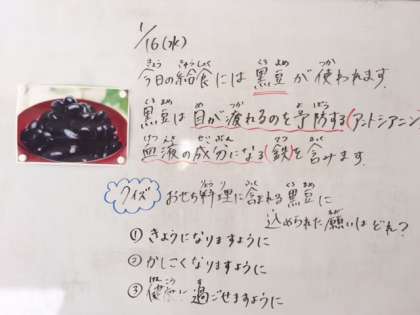 1/16(水)
今日の給食には黒豆が使われます。
黒豆は目が疲れるのを予防する(アントシアニン
血液の成分になる(鉄)を含みます。
クイズ おせち料理に含まれる黒豆に
込められた願いはどれ?
①きようになりますように
②かしこくなりますように
③健康に過ごせますように